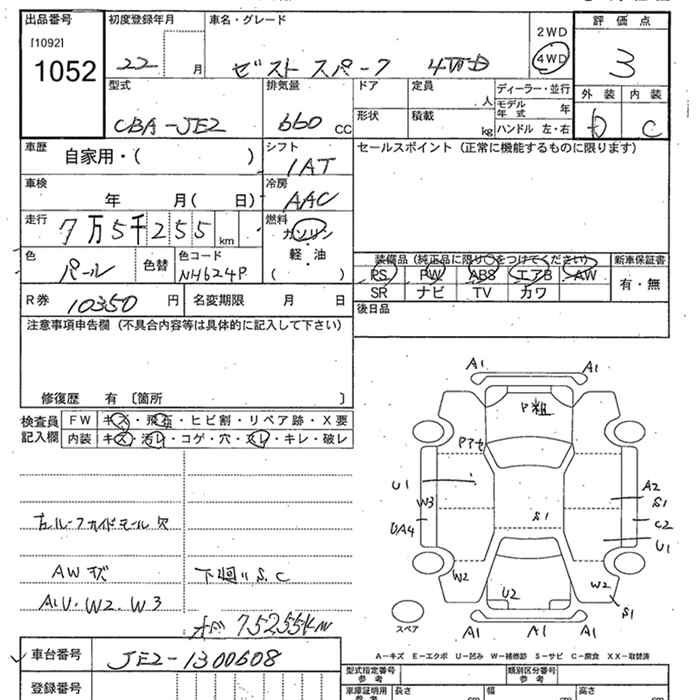 出品番号 [1092] 1052
初度登録年月 22 月
車名・グレード ゼスト スパーク 4WD
2WD
4WD
評価点 3
外装 内装 C
型式 CBA-JE2
排気量 660 CC
ドア
形状
定員 人
積載 kg
ディーラー・並行
モデル年式 年
ハンドル 左・右
車歴 自家用・( )
シフト IAT
セールスポイント (正常に機能するものに限ります)
車検 年 月( 日)
冷房 AAC
走行 7万5千255 km
燃料 ガソリン
軽・油
( )
色 パール 色替 色コード NH624P
装備品 (純正品に限り○をつけてください) 新車保証書
PS PW ABS エアB AW 有・無
SR ナビ TV カワ
R券 10350 円 名変期限 月 日
後日品
注意事項申告欄 (不具合内容等は具体的に記入して下さい)
修復歴 有 〔箇所 〕
検査員記入欄
FW キズ・飛石・ヒビ割・リペア跡・X要
内装 キズ・汚レ・コゲ・穴・スレ・キレ・破レ
A1 A1
U1 W3
S1
A2 S1
C2
U1
W2 U2 W2
S1
A1 A1
スペア
AW キズ
下廻り S.C
A1U.W2.W3
75255KM
A-キズ E-エクボ U-凹み W-補修跡 S-サビ C-腐食 XX-取替済
車台番号 JE2-1300608
型式指定番号 参考
類別区分番号 参考
登録番号
車庫証明用 参考 長さ cm 幅 cm 高さ cm